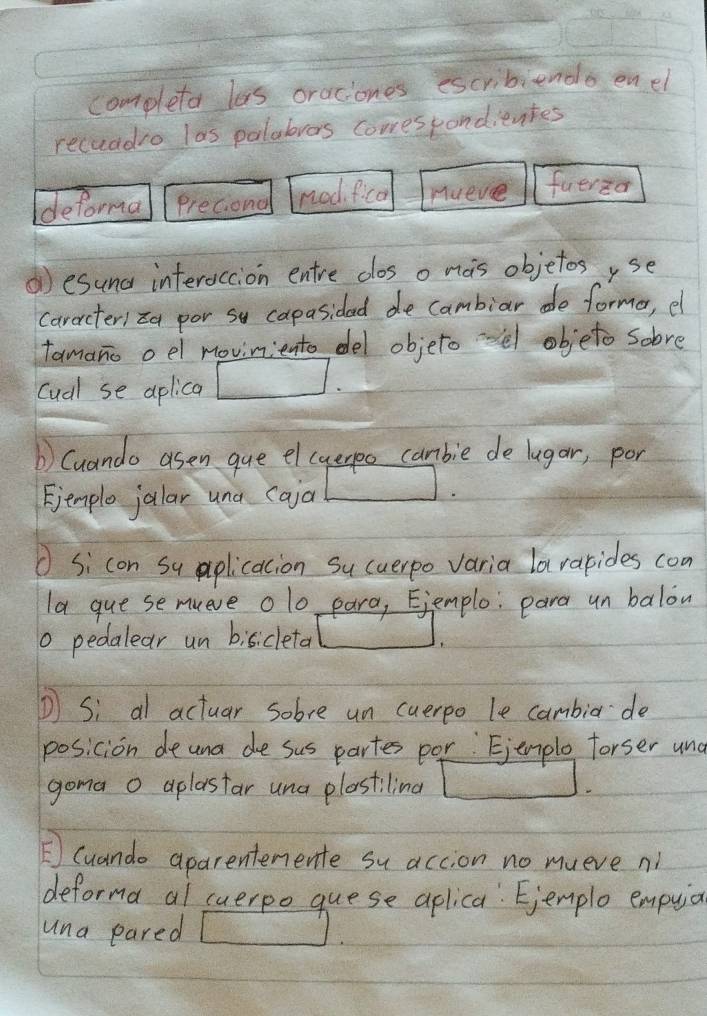 completa las oraciones escribiendo en el
recuadro las palabras correspondientes
deforma Preciona modifica mueve fuerza
a) es una interacción entre dos o más objetos y se
caracteriza por su capasidad de cambiar de forma, el
tamaño o el movimiento del objeto el objeto sobre
cual se aplica .
b) Cuando asen que el cuerpo cambie de lugar, por
Ejemplo jalar una caja .
c) si con su aplicacion su cuerpo varia la rapides con
la que se mueve o lo para, Ejemplo: para un balón
o pedalear un bisicleta .
D) Si al actuar sobre un cuerpo le cambia de
posición de una de sus partes por: Ejemplo torser una
goma o aplastar una plastilina .
E) Cuando aparentemente su accion no mueve ni
deforma al cuerpo que se aplica: Ejemplo empuja
una pared .